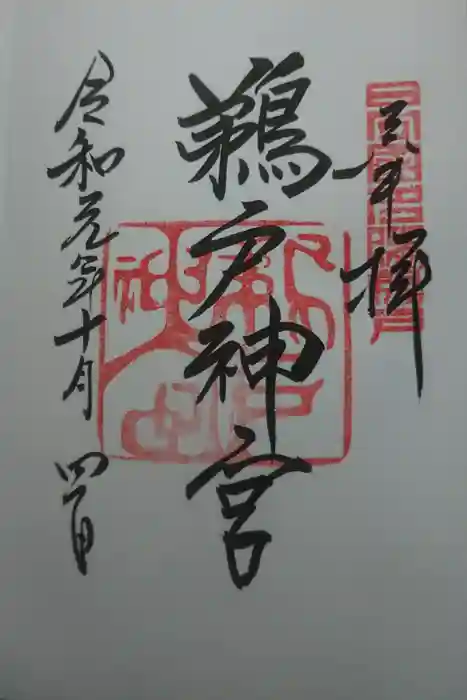 奉拝
鵜戸神宮
令和元年十月四日